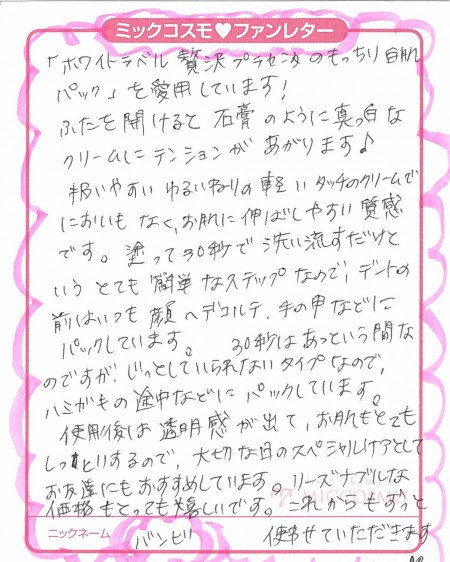 ミックコスモ♥ファンレター
「ホワイトラベル 贅沢プラセンタのもっちり白肌
パック」を愛用しています!
ふたを開けると 石膏のように真っ白な
クリームにテンションが あがります♪
扱いやすい ゆるいねりの軽いタッチのクリームで
においもなく、お肌に伸ばしやすい質感
です。塗って30秒で洗い流すだけと
いう とても 簡単なステップなので、デートの
前はいつも 顔へデコルテ、手の甲などに
パックしています。 30秒はあっという間な
のですが、じっとしていられないタイプなので、
ハミガキの途中などに パックしています。
使用後は 透明感が出て、お肌もとても
しっとりするので、大切な日のスペシャルケアとして
お友達にもおすすめしています。リーズナブルな
価格もとっても嬉しいです。これからもずっと
使わせていただきます
ニックネーム バンビ